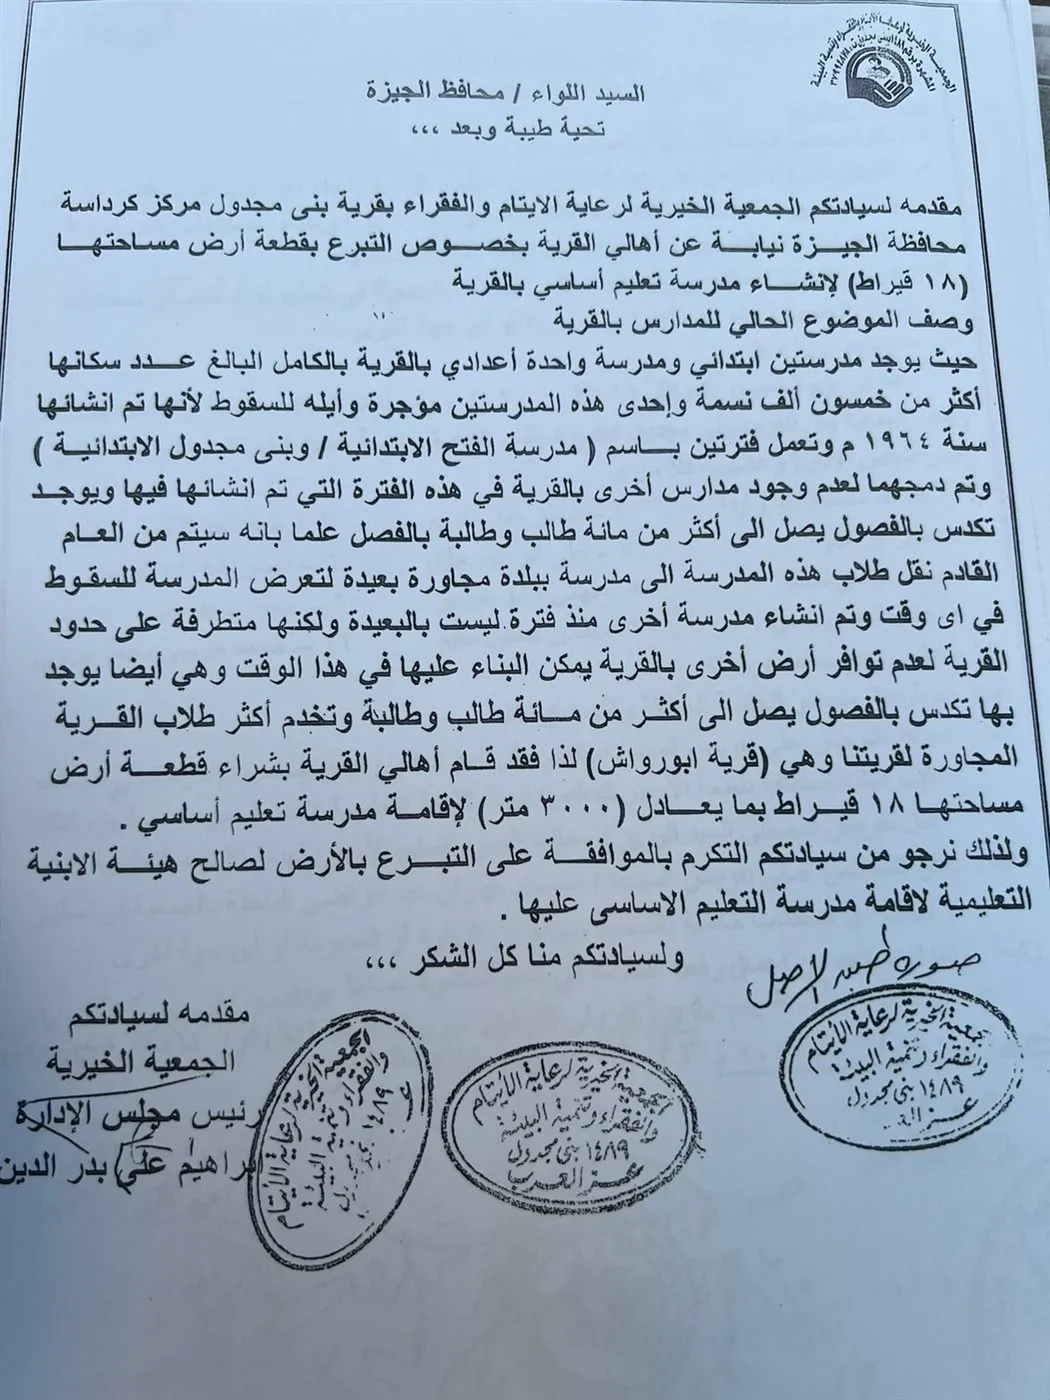 الجمعية الخيرية لرعاية الأيتام والفقراء وتنمية البيئة
السيد اللواء / محافظ الجيزة
تحية طيبة وبعد ،،،
مقدمه لسيادتكم الجمعية الخيرية لرعاية الايتام والفقراء بقرية بنى مجدول مركز كرداسة
محافظة الجيزة نيابة عن أهالي القرية بخصوص التبرع بقطعة أرض مساحتها
(١٨ قيراط) لإنشاء مدرسة تعليم أساسي بالقرية
وصف الموضوع الحالي للمدارس بالقرية
حيث يوجد مدرستين ابتدائي ومدرسة واحدة أعدادي بالقرية بالكامل البالغ عدد سكانها
أكثر من خمسون ألف نسمة وإحدى هذه المدرستين مؤجرة وأيله للسقوط لأنها تم انشائها
سنة ١٩٦٤ م وتعمل فترتين باسم ( مدرسة الفتح الابتدائية / وبنى مجدول الابتدائية )
وتم دمجهما لعدم وجود مدارس أخرى بالقرية في هذه الفترة التي تم انشائها فيها ويوجد
تكدس بالفصول يصل الى أكثر من مائة طالب وطالبة بالفصل علما بانه سيتم من العام
القادم نقل طلاب هذه المدرسة الى مدرسة ببلدة مجاورة بعيدة لتعرض المدرسة للسقوط
في اى وقت وتم انشاء مدرسة أخرى منذ فترة ليست بالبعيدة ولكنها متطرفة على حدود
القرية لعدم توافر أرض أخرى بالقرية يمكن البناء عليها في هذا الوقت وهي أيضا يوجد
بها تكدس بالفصول يصل الى أكثر من مائة طالب وطالبة وتخدم أكثر طلاب القرية
المجاورة لقريتنا وهي (قرية ابورواش) لذا فقد قام أهالي القرية بشراء قطعة أرض
مساحتها ١٨ قيراط بما يعادل (٣٠٠٠ متر) لإقامة مدرسة تعليم أساسي .
ولذلك نرجو من سيادتكم التكرم بالموافقة على التبرع بالأرض لصالح هيئة الابنية
التعليمية لاقامة مدرسة التعليم الاساسى عليها .
ولسيادتكم منا كل الشكر ،،،
صورة طبق الاصل
مقدمه لسيادتكم
الجمعية الخيرية
رئيس مجلس الإدارة
ابراهيم على بدر الدين
الجمعية الخيرية لرعاية الأيتام
والفقراء وتنمية البيئة
١٤٨٩ بنى مجدول
الجمعية الخيرية لرعاية الأيتام
والفقراء وتنمية البيئة
١٤٨٩ بنى مجدول
الجمعية الخيرية لرعاية الأيتام
والفقراء وتنمية البيئة
١٤٨٩